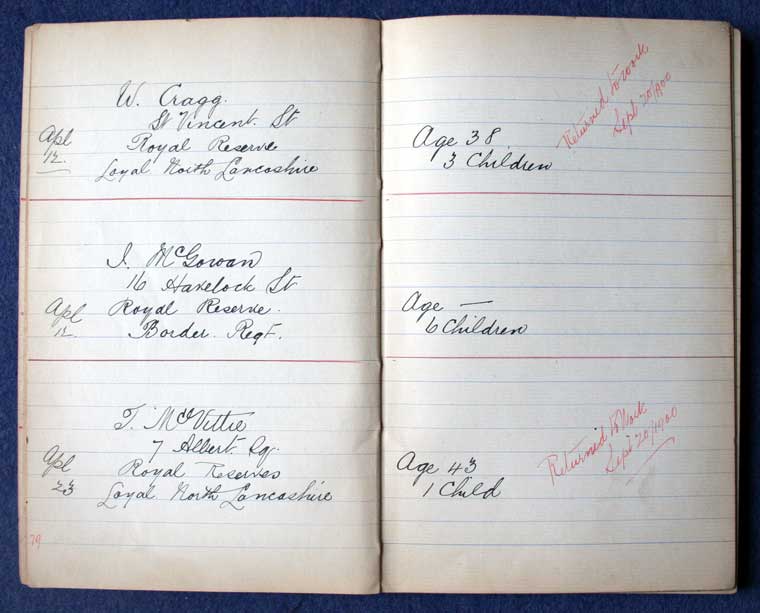 W. Cragg.
St Vincent. St
Apl
12.
Royal Reserve
Loyal North Lancashire
Age 38
3 Children
Returned to work
Sept 20/1900
J. McGowan
16 Havelock St
Apl
12
Royal Reserve.
Border. Regt.
Age —
6 Children
T. McVittie
7 Albert. Sq.
Apl
23
Royal Reserves
Loyal North Lancashire
Age 43
1 Child
Returned to Work
Sept 20/1900
79